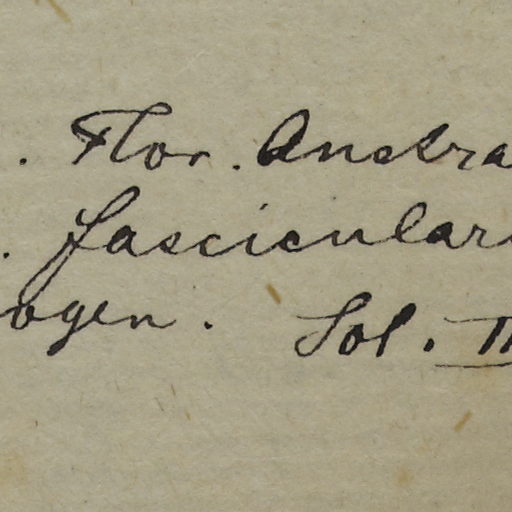 . Flor. Austra
. fascicular
ogen. Sol. II